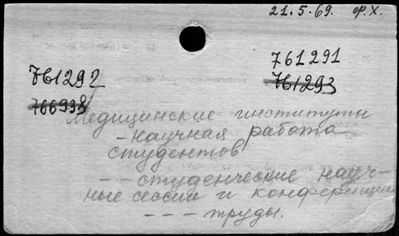 21.5.69. ф.Х.
761291
761292
761293
766938
Медицинские институты
- научная работа
студентов
- - студенческие науч-
ные сессии и конференции
- - - труды.